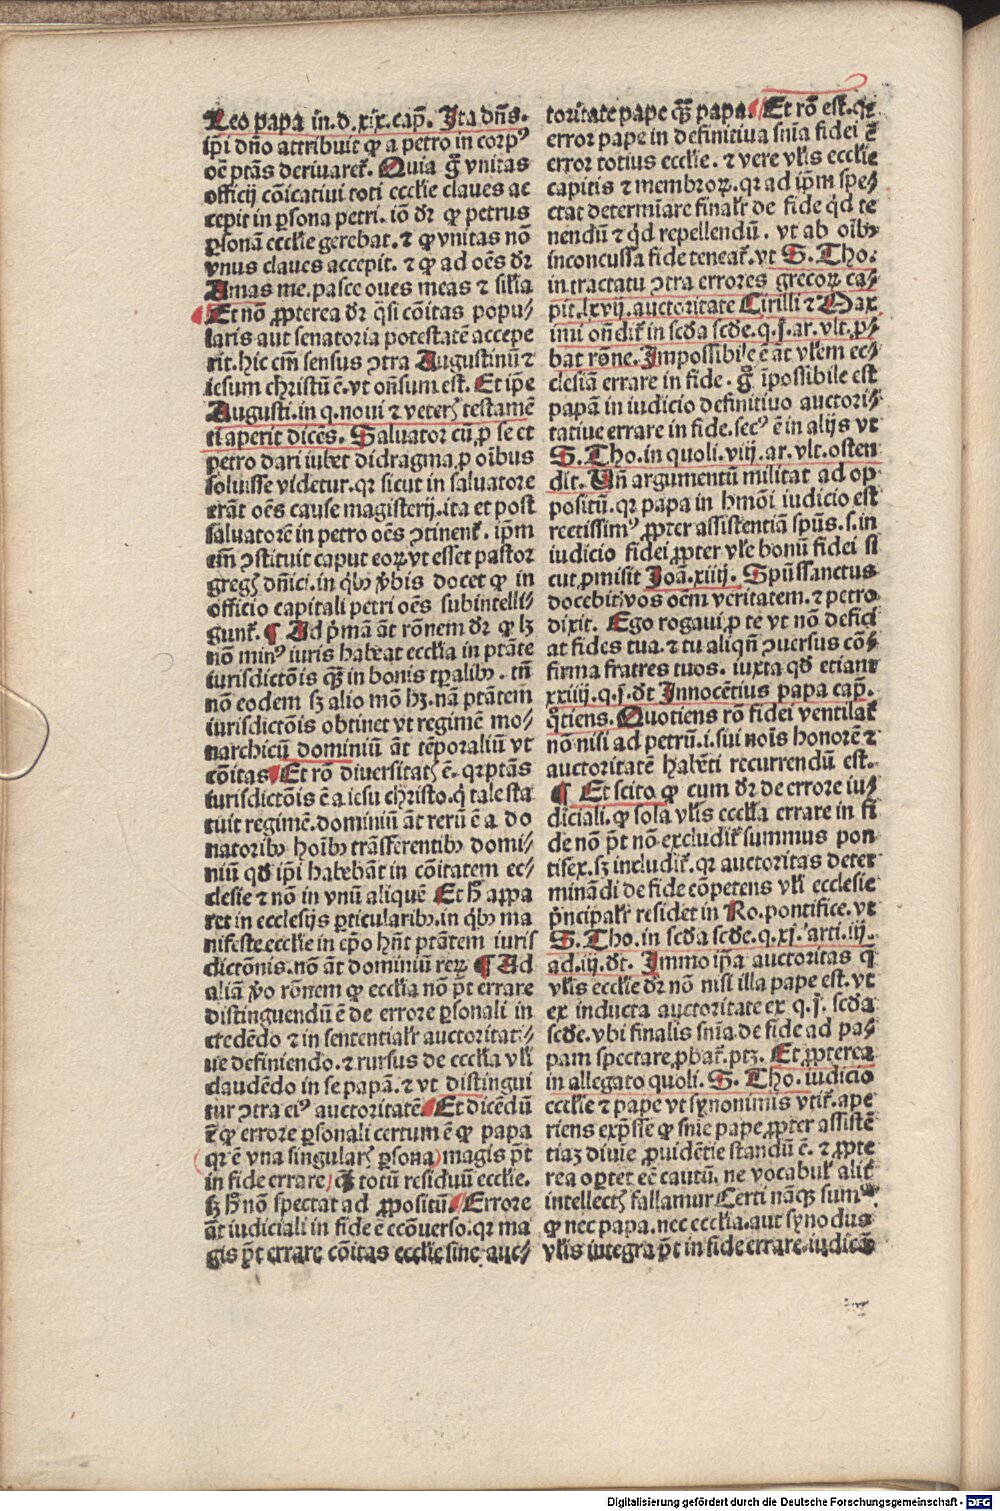 Leo papa in.d.xix.cap̄. Ita dn̄s.
ip̄i dn̄o attribuit ꝙ a petro in corpꝰ
oē ptās deriuaret᷑. Quia g̊ vnitas
officij cōicatiui toti eccl̄ie claues ac
cepit in ꝑsona petri. iō dr̄ ꝙ petrus
ꝑsonā eccl̄ie gerebat. ⁊ ꝙ vnitas nō
vnus claues accepit. ⁊ ꝙ ad oēs dr̄
Amas me. pasce oues meas ⁊ sil̄ia
Et nō ꝓpterea dr̄ q̄si cōitas popu⸗
laris aut senatoria potestatē accepe
rit. hic em̄ sensus ꝯtra Augustinū ⁊
iesum christū ē. vt on̄sum est. Et ip̄e
Augusti. in q. noui ⁊ veteꝝ testamē
ti aperit dicēs. Saluator cū ꝓ se et
petro dari iubet didragma ꝓ oībus
soluisse videtur. qꝛ sicut in saluatore
erāt oēs cause magisterij. ita et post
saluatorē in petro oēs ꝯtinent᷑. ip̄m
em̄ ꝯstituit caput eoꝝ vt esset pastor
gregꝭ dn̄ici. in qͥbꝰ v̄bis docet ꝙ in
officio capitali petri oēs subintelli⸗
gunt᷑. ¶ Ad pͥmā āt rōnem dr̄ ꝙ lꝫ
nō minꝰ iuris habeat eccl̄ia in ptāte
iurisdictōis qꝫ in bonis tp̄alibꝰ. tn̄
nō eodem sꝫ alio mō hꝫ. nā ptātem
iurisdictōis obtinet vt regimē mo⸗
narchicū dominiū āt tēporaliū vt
cōitas Et rō diuersitatꝭ ē. qꝛ ptās
iurisdictōis ē a iesu christo. qͥ tale sta
tuit regimē. dominiū āt rerū ē a do
natoribꝰ hoībꝰ trāsferentibꝰ domi⸗
niū qd̄ ip̄i habebāt in cōitatem ec⸗
clesie ⁊ nō in vnū aliquē Et h̄ appa
ret in ecclesijs ꝑticularibꝰ. in qͥbꝰ ma
nifeste. eccl̄ie in ep̄o hn̄t ptātem iuris
dictōnis. nō āt dominiū reꝝ ¶ Ad
aliā v̄o rōnem ꝙ eccl̄ia nō pōt errare
distinguendū ē de errore ꝑsonali in
credēdo ⁊ in sententialr̄ auctoritati⸗
ue definiendo. ⁊ rursus de eccl̄ia vl̄i
claudēdo in se papā. ⁊ vt distingui
tur ꝯtra eiꝰ auctoritatē Et dicēdū
ē ꝙ errore ꝑsonali certum ē ꝙ papa
qꝛ ē vna singularꝭ ꝑsona magis pōt
in fide errare qꝫ totū residuū eccl̄ie.
sꝫ h̄ nō spectat ad ꝓpositū. Errore
āt iudiciali in fide ē ecōuerso. qꝛ ma
gis pōt errare cōitas eccl̄ie sine auc⸗
toritate pape qꝫ papa. Et rō est. qꝛ
error pape in definitiua sn̄ia fidei ē
error totius eccl̄ie. ⁊ vere vl̄is eccl̄ie
capitis ⁊ membroꝝ. qꝛ ad ip̄m spe⸗
ctat determīare finalr̄ de fide qͥd te
nendū ⁊ qͥd repellendū. vt ab oībꝰ
inconcussa fide teneat᷑. vt S. Tho.
in tractatu ꝯtra errores grecoꝝ ca⸗
pit. lxvij. auctoritate Cirilli ⁊ Max
imi on̄dit᷑ in scd̄a scd̄e. q. j. ar. vlt. ꝓ⸗
bat rōne. Impossibile ē āt vl̄em ec⸗
clesiā errare in fide. g̊ īpossibile est
papā in iudicio definitiuo auctori⸗
tatiue errare in fide. secꝰ ē in alijs vt
S. Tho. in quoli. viij. ar. vlt. osten
dit. Vn̄ argumentū militat ad op
positū. qꝛ papa in hmōi iudicio est
rectissimꝰ ꝓpter assistentiā spūs. s. in
iudicio fidei ꝓpter vl̄e bonū fidei si
cut ꝓmisit Joā. xiiij. Spūssanctus
docebit vos oēm veritatem. ⁊ petro
dixit. Ego rogaui ꝓ te vt nō defici
at fides tua. ⁊ tu aliqn̄ ꝯuersus cō⸗
firma fratres tuos. iuxta qd̄ etiam
xxiiij. q. j. dt Innocētius papa cap̄.
qͦtiens. Quotiens rō fidei ventilat᷑
nō nisi ad petrū. i. sui noīs honorē ⁊
auctoritatē habēti recurrendū est.
¶ Et scito ꝙ cum dr̄ de errore iu⸗
diciali. ꝙ sola vl̄is eccl̄ia errare in fi
de nō pōt nō excludit᷑ summus pon
tifex. sꝫ includit᷑. qꝛ auctoritas deter
minādi de fide cōpetens vl̄i ecclesie
pͥncipalr̄ residet in Ro. pontifice. vt
S. Tho. in scd̄a scd̄e. q. xj. arti. iij.
ad. iij. dt. Immo ip̄a auctoritas q̄
vl̄is eccl̄ie dr̄ nō nisi illa pape est. vt
ex inducta auctoritate ex q. j. scd̄a
scd̄e. vbi finalis sn̄ia de fide ad pa⸗
pam spectare ꝓbat᷑. ptꝫ. Et ꝓpterea
in allegato quoli. S. Tho. iudicio
eccl̄ie ⁊ pape vt synonimis vtit᷑. ape
riens exp̄sse ꝙ sn̄ie pape ꝓpter assistē
tiaꝫ diuīe ꝓuidētie standū ē. ⁊ ꝓpte
rea oꝑtet eē cautū. ne vocabul̄ alit᷑
intellectꝭ fallamur Certi nāqꝫ sumꝰ
ꝙ nec papa. nec eccl̄ia. aut synodus
vl̄is integra pōt in fide errare. iudicā